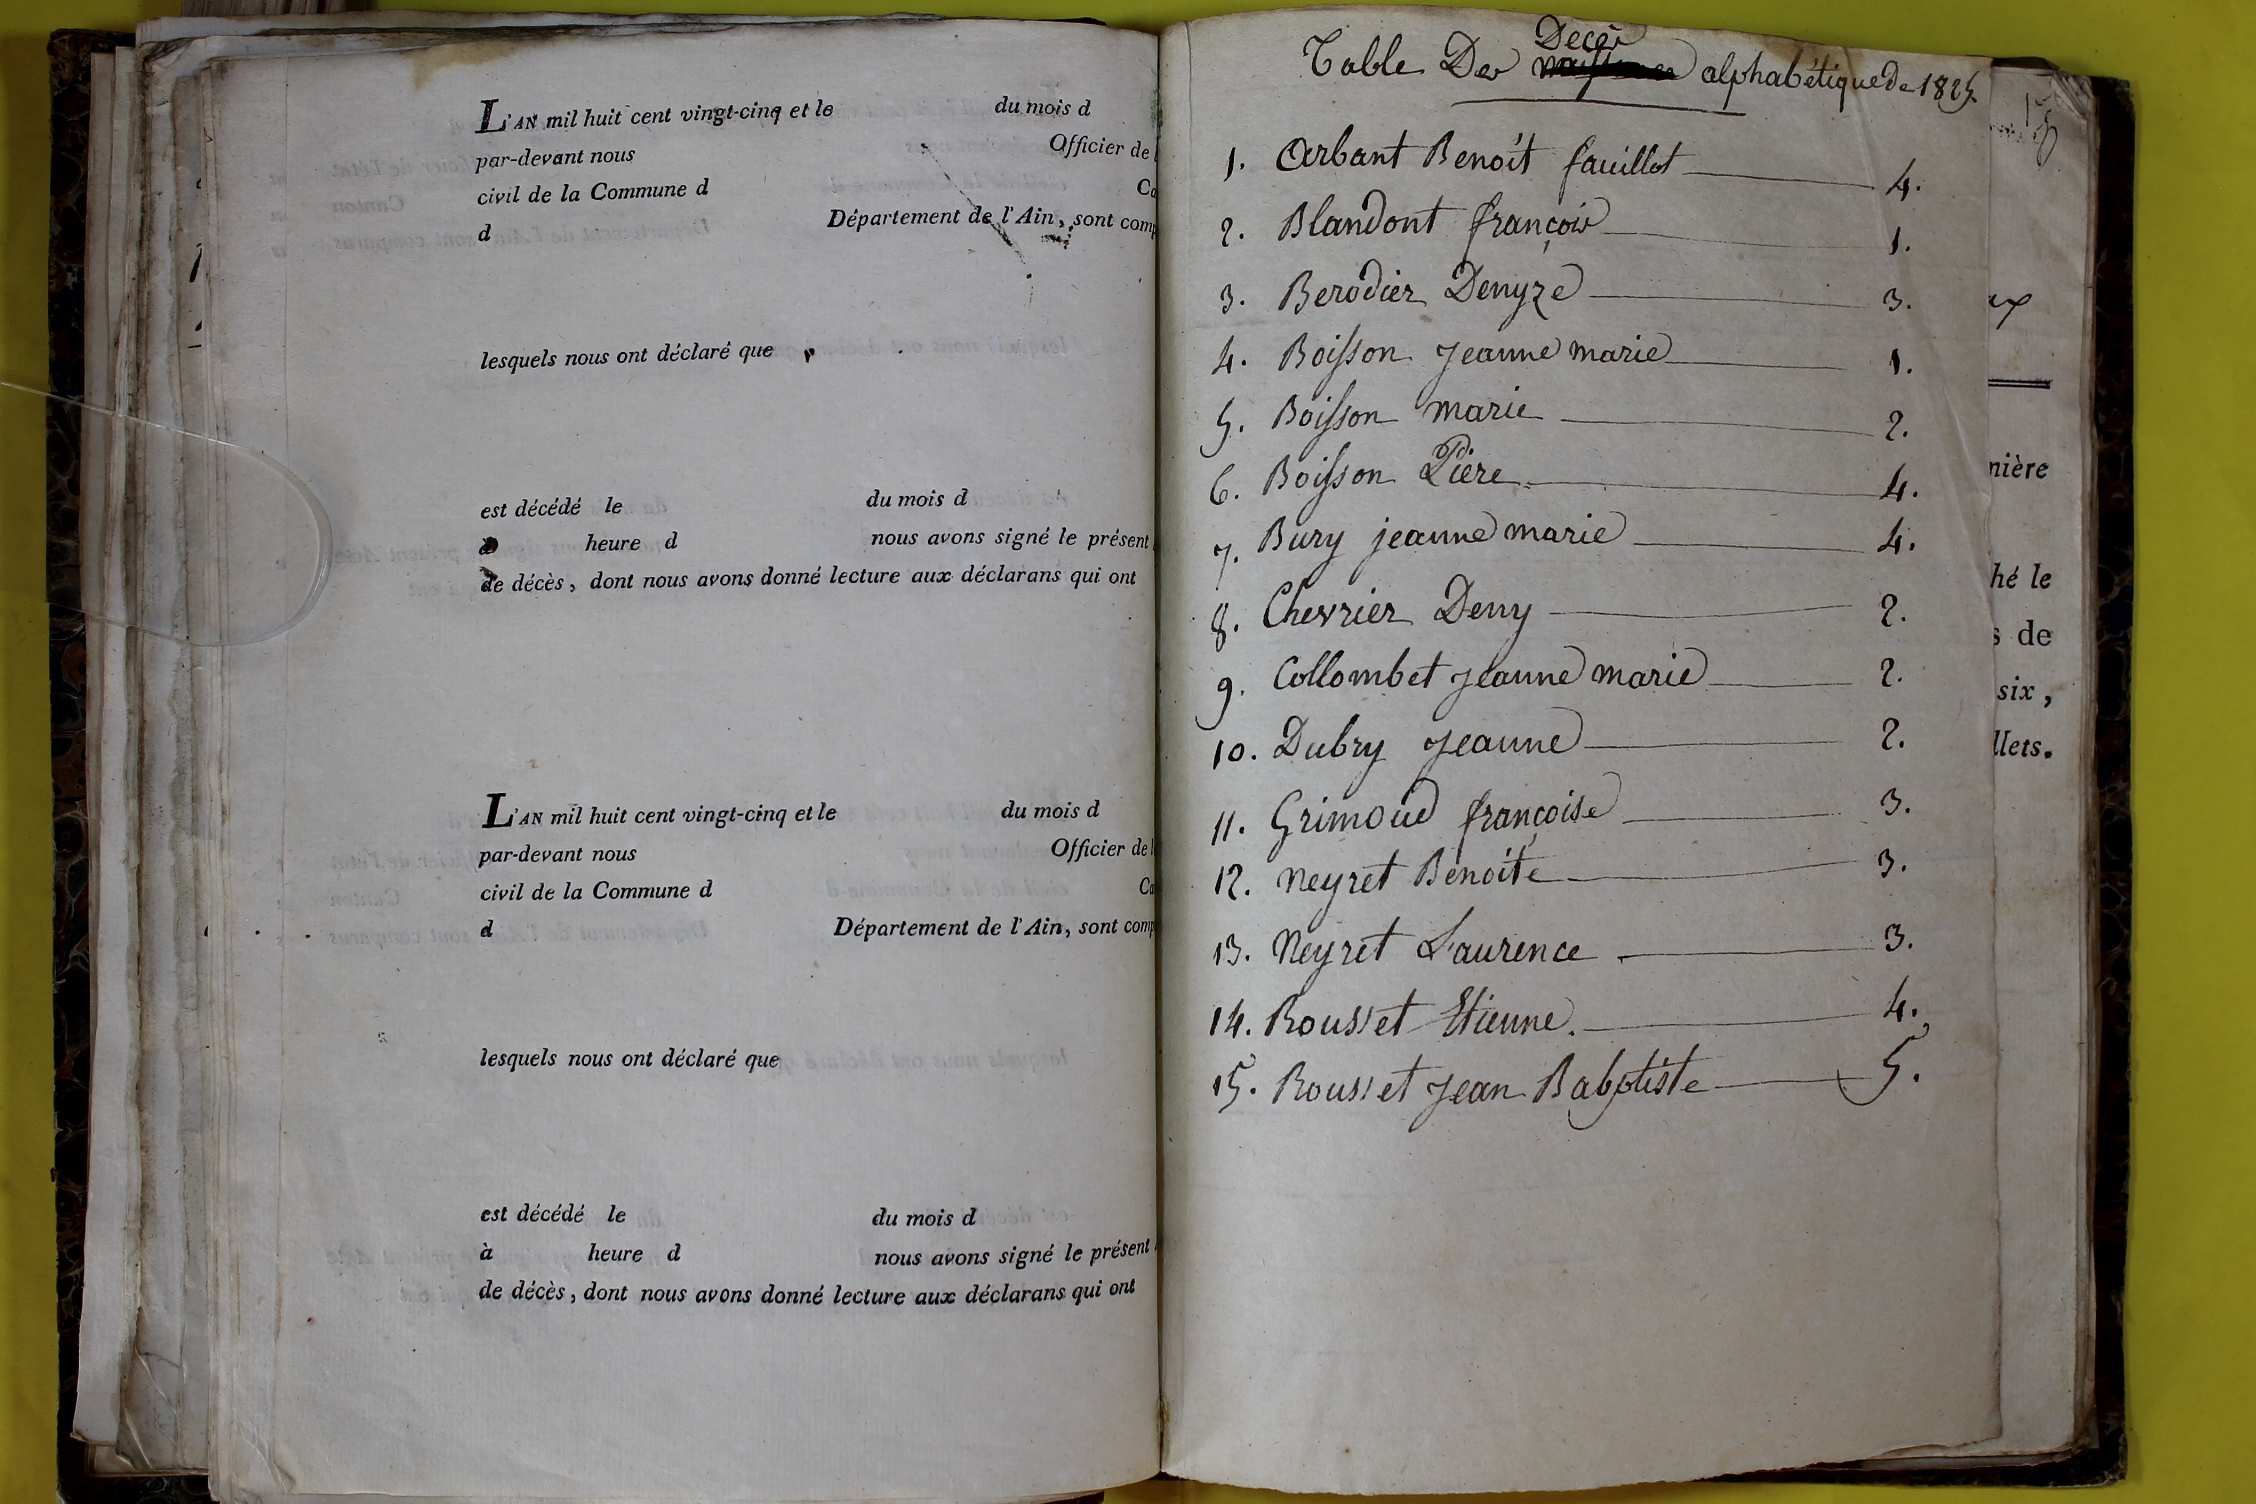 L'AN mil huit cent vingt-cinq et le du mois d
par-devant nous Officier de l
civil de la Commune d Ca
d Département de l'Ain, sont comp
lesquels nous ont déclaré que
est décédé le du mois d
à heure d nous avons signé le présent
de décès, dont nous avons donné lecture aux déclarans qui ont
L'AN mil huit cent vingt-cinq et le du mois d
par-devant nous Officier de l
civil de la Commune d Ca
d Département de l'Ain, sont comp
lesquels nous ont déclaré que
est décédé le du mois d
à heure d nous avons signé le présent
de décès, dont nous avons donné lecture aux déclarans qui ont
Deces
Table Des alphabétique de 1825.
1. Arbant Benoît fauillot 4.
2. Blandont françois 1.
3. Berodier Denyze 3.
4. Boisson Jeanne marie 1.
5. Boisson marie 2.
6. Boisson Piere 4.
7. Bury jeanne marie 4.
8. Chevrier Deny 2.
9. Collombet jeanne marie 2.
10. Dubry Jeanne 2.
11. Grimoud françoise 3.
12. Neyret Benoîte 3.
13. Neyret Laurence 3.
14. Rousset Etienne. 4.
15. Rousset Jean Babptiste 5.
ux
nière
hé le
s de
six,
llets.